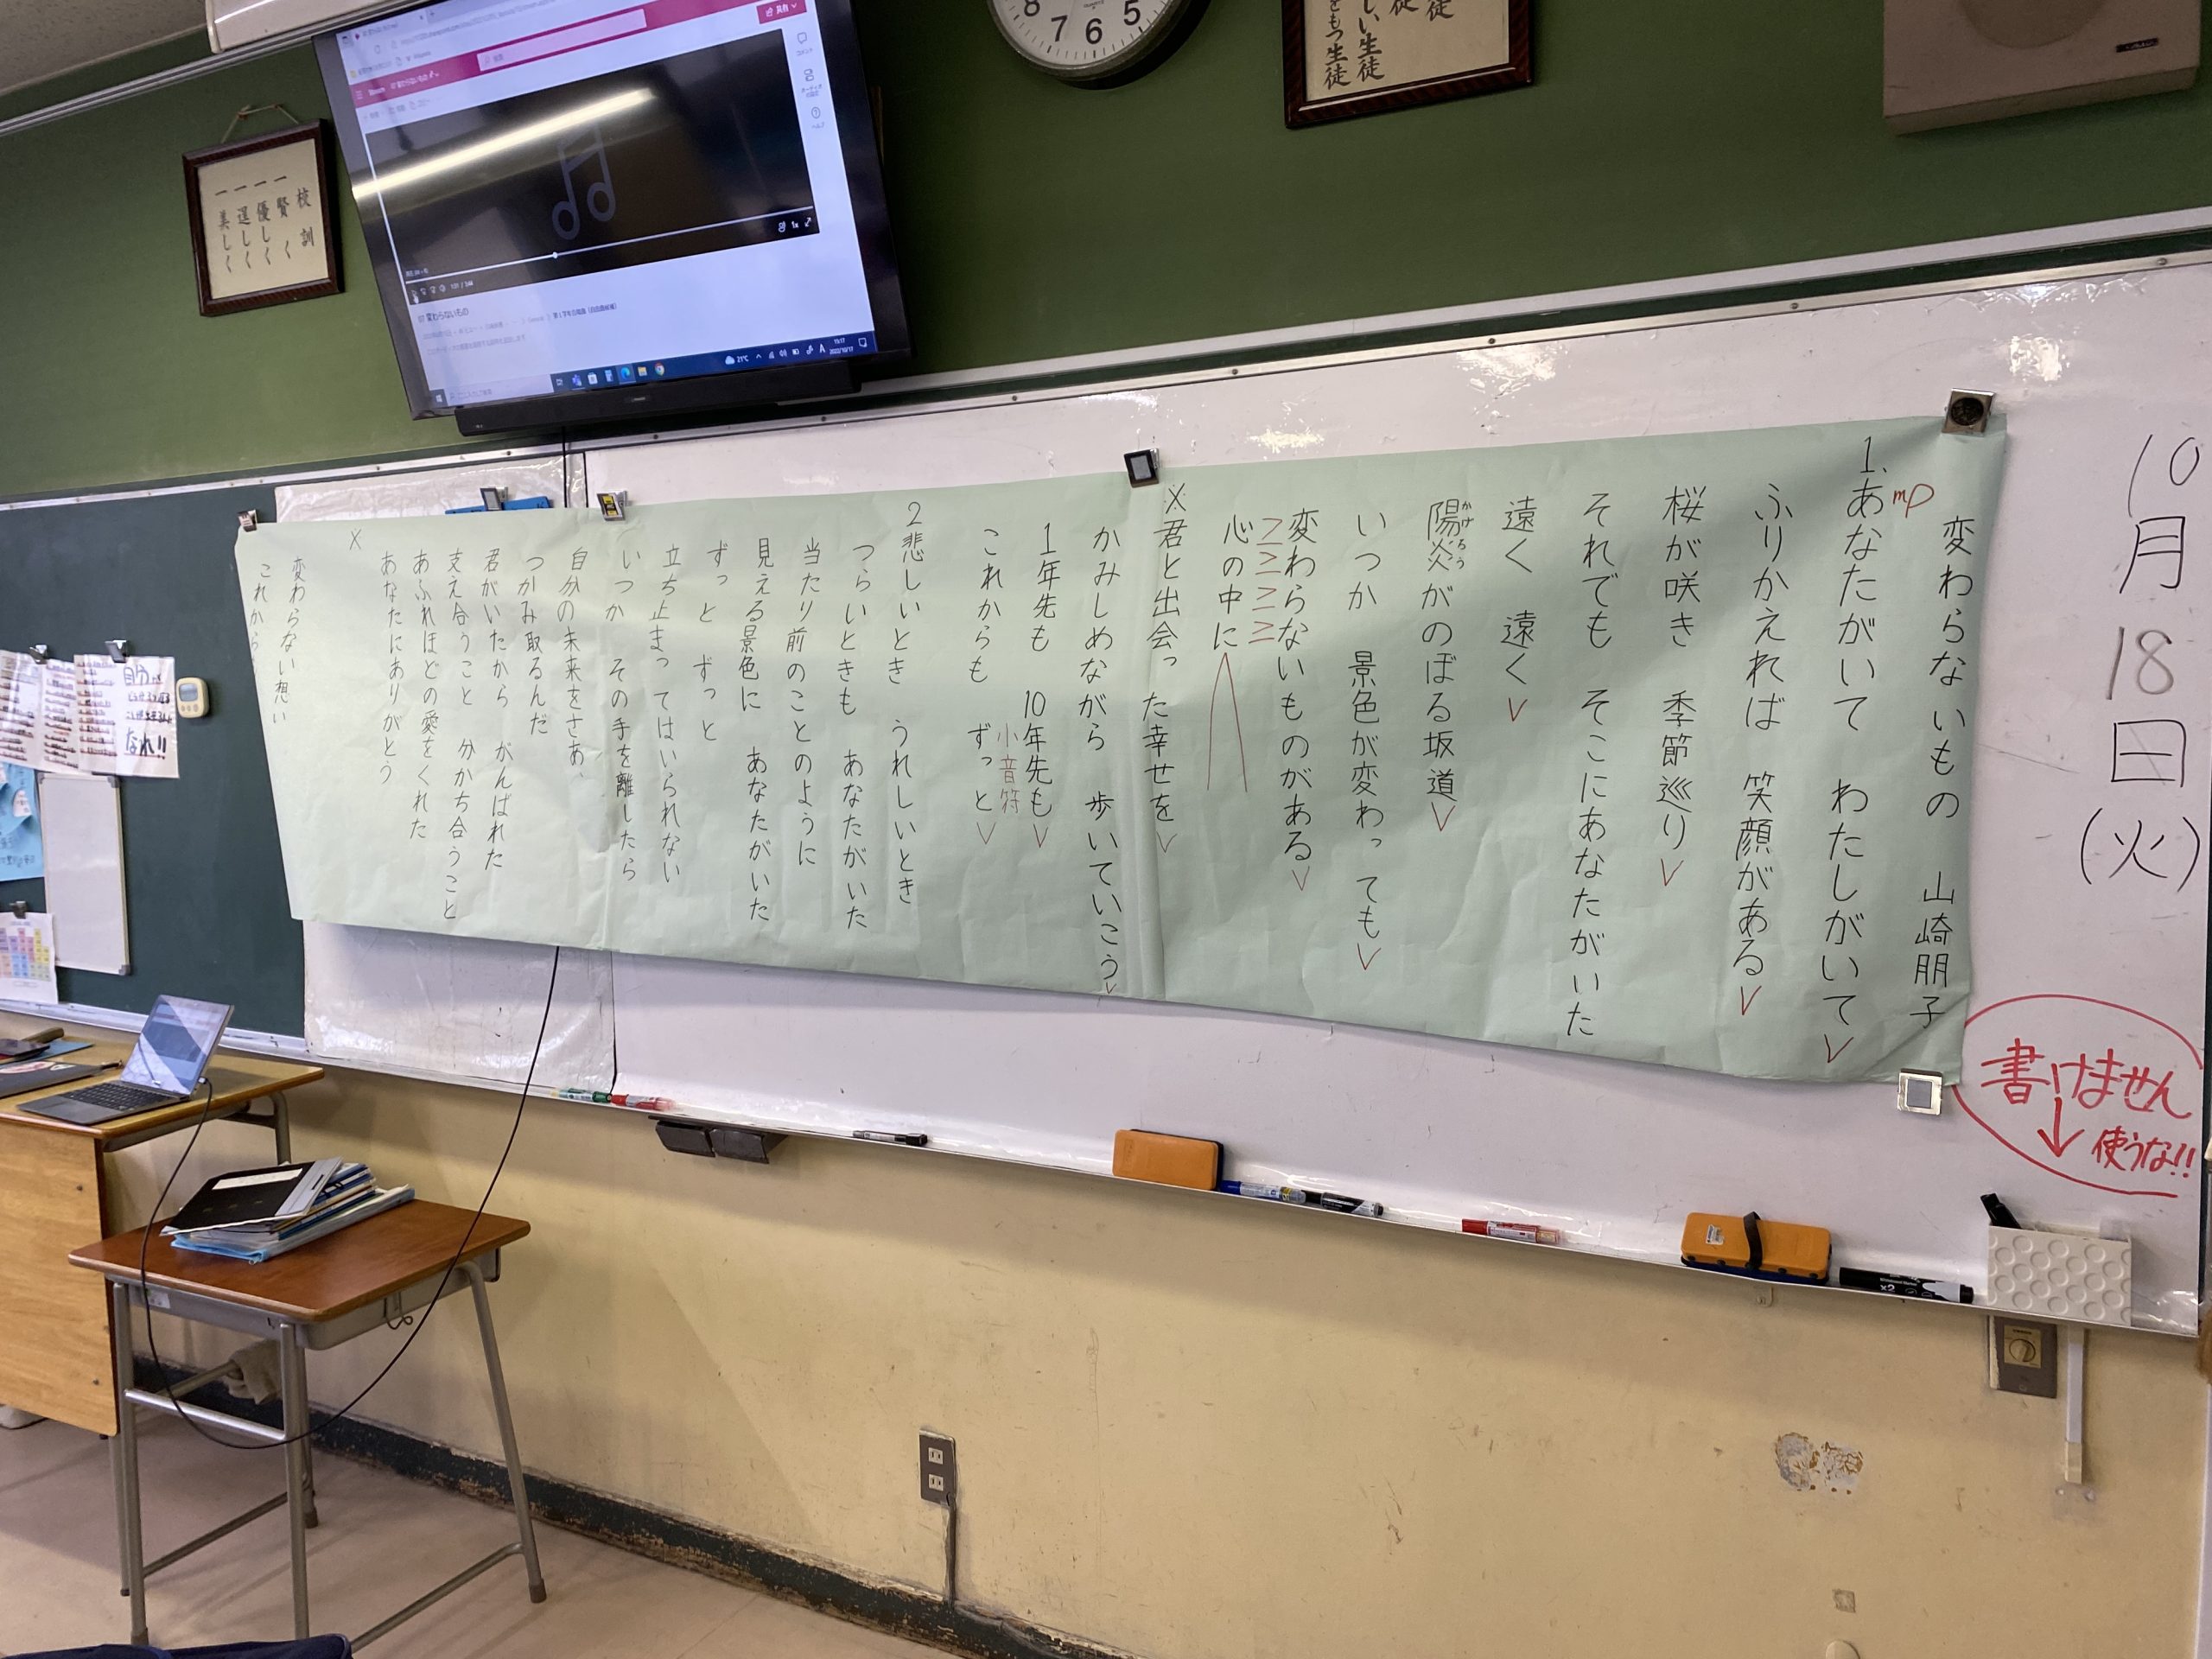 10月18日(火)
書けません
↓使うな!!
変わらないもの 山崎朋子
mp
1.あなたがいて わたしがいて∨
ふりかえれば 笑顔がある∨
桜が咲き 季節巡り∨
それでも そこにあなたがいた
遠く 遠く∨
陽炎がのぼる坂道∨
かげろう
いつか 景色が変わっても∨
変わらないものがある∨
>>>>>
心の中に
※君と出会った幸せを∨
かみしめながら 歩いていこう∨
1年先も 10年先も∨
小音符
これからも ずっと∨
2悲しいとき うれしいとき
つらいときも あなたがいた
当たり前のことのように
見える景色に あなたがいた
ずっと ずっと
立ち止まってはいられない
いつか その手を離したら
自分の未来をさあ、
つかみ取るんだ
君がいたから がんばれた
支え合うこと 分かち合うこと
あふれほどの愛をくれた
あなたにありがとう
※
変わらない想い
これから
校訓
一賢く
一優しく
一逞しく
一美しく
8 7 6 5
徒
徒
しい生徒
をもつ生徒
共有
Stream
07 変わらないもの
コメント
ヘルプ
1x
07 変わらないもの
21℃
A
15:17
2022/10/17
なれ!!
x2